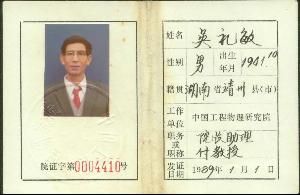 院证字第0004410号
姓名 吴礼敏
性别 男 出生年月 1941.10
籍贯 湖南省靖州县(市)
工作单位 中国工程物理研究院
职务或职称 院长助理
付教授
发证日期 1989年1月1日